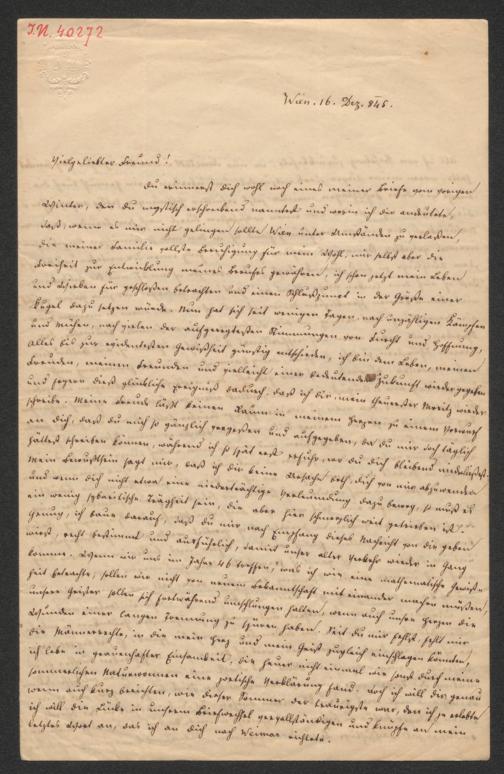 I.N. 40272
Wien. 16. Dez. 845.
Vielgeliebter Freund!
Du erinnerst Dich wohl noch eines meiner Briefe vom vorigen
Winter, den Du mystisch erschreckend nanntest und worin ich Dir andeutete,
daß, wenn es mir nicht gelingen sollte Wien unter Umständen zu verlassen,
die meiner Familie vollste Beruhigung für mein Wohl, mir selbst aber die
Freiheit zur Entwicklung meines Berufes gewähren, ich schon jetzt mein Leben
und Streben für geschlossen betrachten und einen Schlußpunct in der Größe einer
Kugel dazu setzen würde. Nun hat sich seit wenigen Tagen, nach unzähligen Kämpfen
und Mühen, nach vielen der aufgeregtesten Stimmungen von Furcht und Hoffnung,
Alles bis zur evidentesten Gewißheit günstig entschieden, ich bin dem Leben, meinen
Freunden, meinen Freuden und vielleicht einer bedeutenden Zukunft wiedergegeben
und feyere dieß glückliche Ereigniß dadurch, daß ich Dir, mein theuerster Moritz wieder
schreibe. Meine Freude läßt keinen Raum in meinem Herzen zu einem Vorwurf
an Dich, daß Du mich so gänzlich vergessen und aufgegeben, da Du mir doch täglich
hättest schreiben können, während ich so spät erst erfuhr, wo Du Dich bleibend niederließest.
Mein Bewußtsein sagt mir, daß ich Dir keine Ursache gab, Dich von mir abzuwenden
und wenn Dich nicht etwa eine niederträchtige Verleumdung dazu bewog, so muß es
ein wenig sybaritische Trägheit sein, die aber hier schmerzlich weit getrieben ist.
Genug, ich baue darauf, daß Du mir nach Empfang dieses Nachricht von Dir geben
wirst, recht bestimmt und ausführlich, damit unser alter Verkehr wieder in Gang
komme. Wenn wir uns im Jahre 46 treffen, was ich wie eine mathematische Gewiß-
heit betrachte, sollen wir nicht von neuem Bekanntschaft mit einander machen müssen,
unsere Geister sollen sich fortwährend umschlungen halten, wenn auch unsere Herzen die
Wunden einer langen Trennung zu spüren haben. Seit Du mir fehlst, fehlt mir
die Männerrechte, in die mein Herz und mein Geist zugleich einschlagen könnten,
ich lebe in grauenhafter Einsamkeit, die heuer nicht einmal wie sonst durch meine
sommerlichen Naturwonnen eine poetische Verklärung fand. Doch ich will Dir genau
wenn auch kurz berichten, wie dieser Sommer der traurigste war, den ich je erlebte
ich will die Lücke in unserem Briefwechsel vervollständigen und knüpfe an mein
letztes Wort an, das ich an Dich nach Weimar richtete.